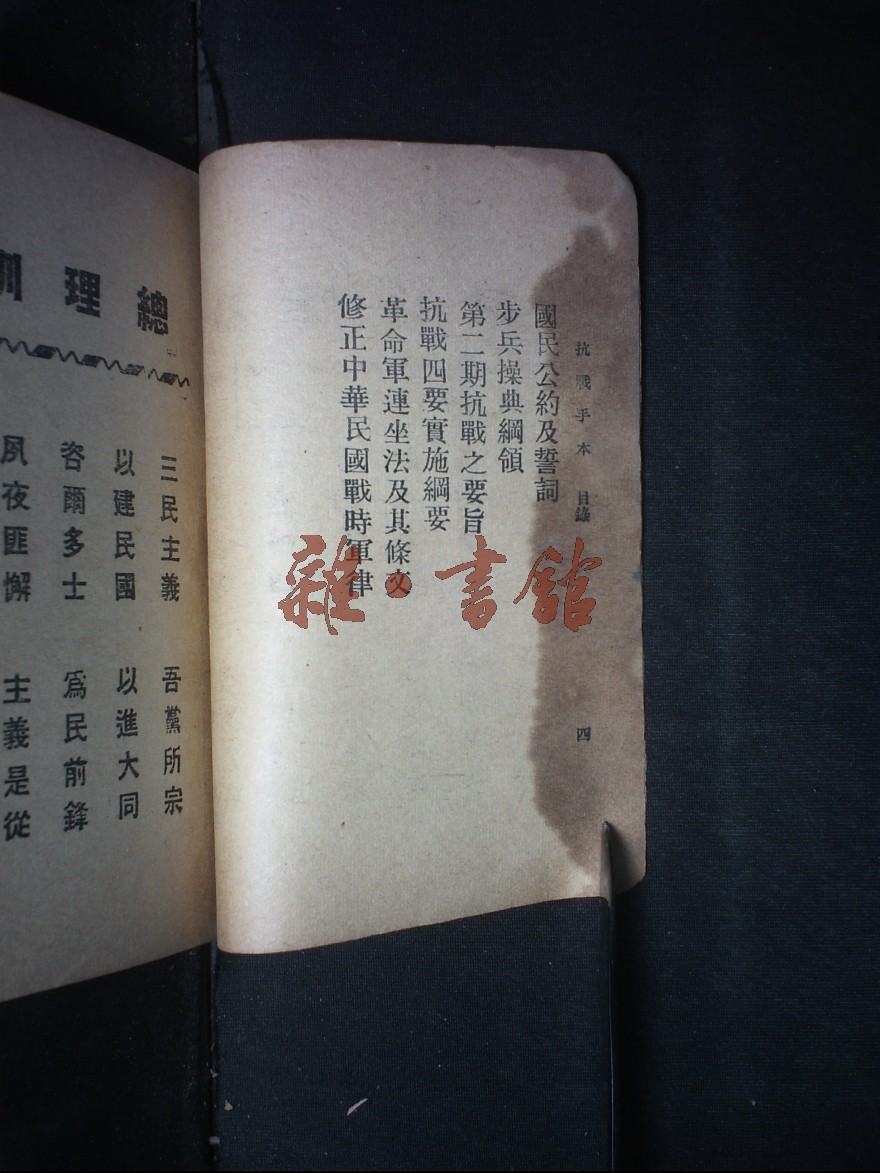 抗戰手本 目錄 四
國民公約及誓詞
步兵操典綱領
第二期抗戰之要旨
抗戰四要實施綱要
革命軍連坐法及其條文
修正中華民國戰時軍律
總理訓
三民主義 吾黨所宗
以建民國 以進大同
咨爾多士 爲民前鋒
夙夜匪懈 主義是從
雜·書館